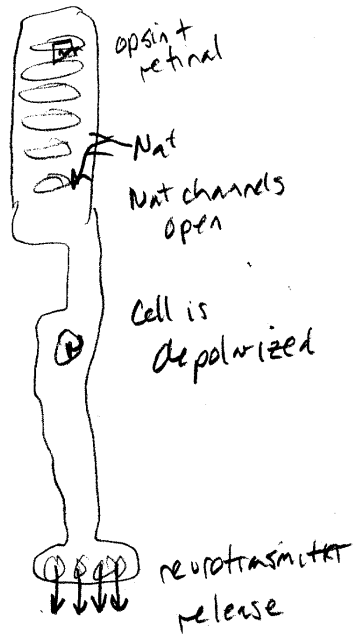 opsin +
retinal
Na+
Na+ channels
open
Cell is
depolarized
neurotransmitter
release